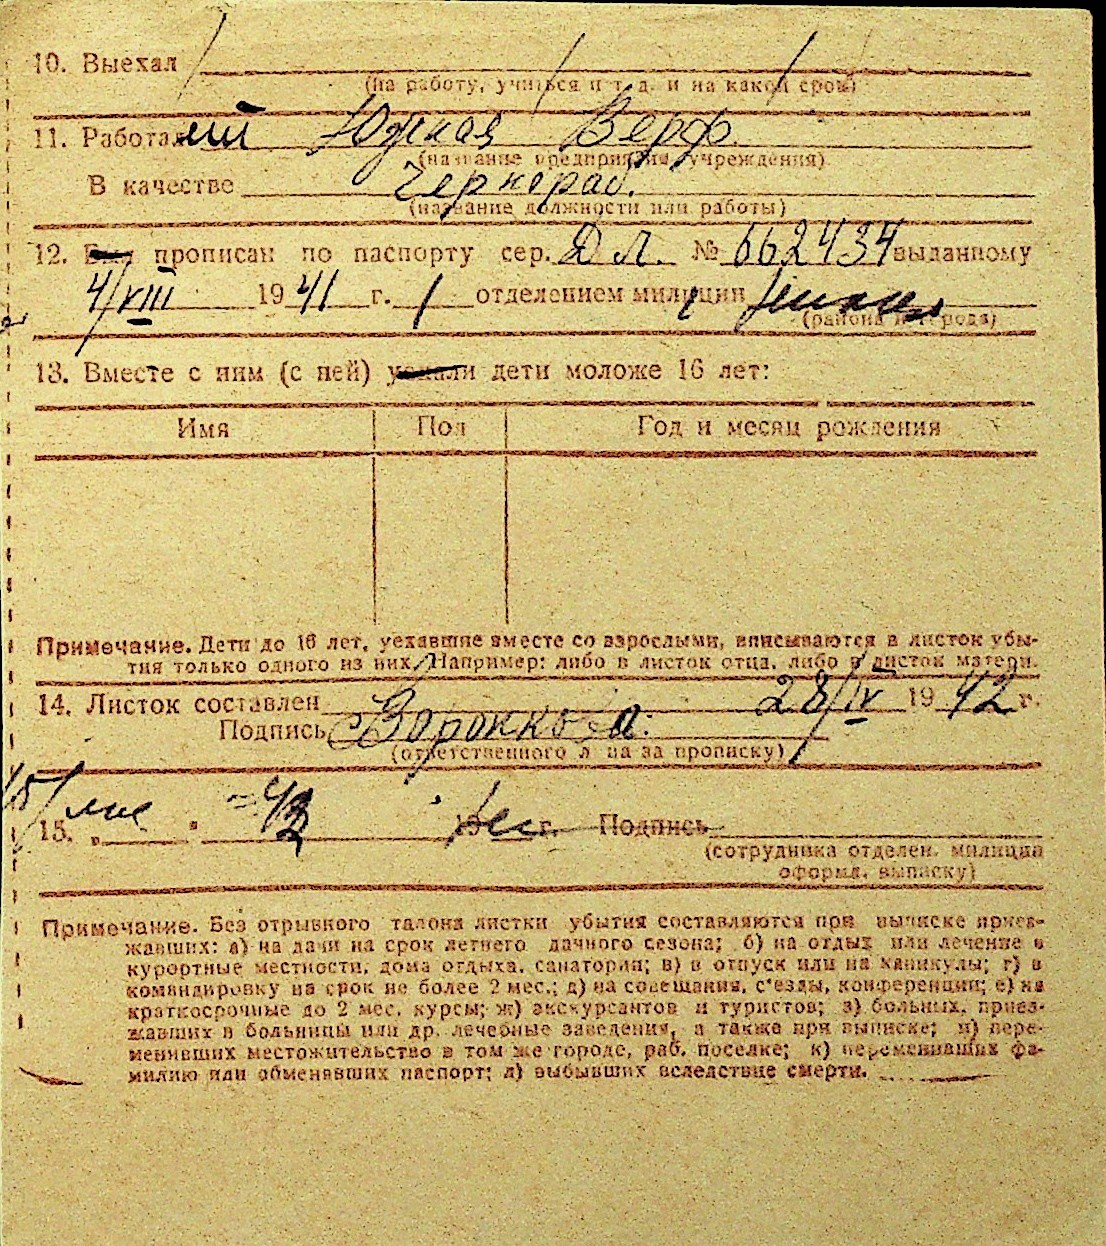 10. Выехал
(на работу, учиться и т. д. и на какой срок)
11. Работал Южная Верф.
(название предприятия, учреждения)
В качестве Чернораб.
(название должности или работы)
12. Был прописан по паспорту сер. Д Л. № 662434 выданному
4/VIII 1941 г. 1 отделением милиции
(района и города)
13. Вместе с ним (с ней) уехали дети моложе 16 лет:
Имя Пол Год и месяц рождения
Примечание. Дети до 16 лет, уехавшие вместе со взрослыми, вписываются в листок убы-
тия только одного из них. Например: либо в листок отца, либо в листок матери.
14. Листок составлен 28/IV 1942 г.
Подпись
(ответственного л на за прописку)
15. „ " 19 г. Подпись
(сотрудника отделен. милиции
оформл. выписку)
Примечание. Без отрывного талона листки убытия составляются при выписке приез-
жавших: а) на дачи на срок летнего дачного сезона; б) на отдых или лечение в
курортные местности, дома отдыха, санатории; в) в отпуск или на каникулы; г) в
командировку на срок не более 2 мес.; д) на совещания, с'езды, конференции; е) на
краткосрочные до 2 мес. курсы; ж) экскурсантов и туристов; з) больных, приез-
жавших в больницы или др. лечебные заведения, а также при выписке; и) пере-
менивших местожительство в том же городе, раб. поселке; к) переменивших фа-
милию или обменявших паспорт; л) выбывших вследствие смерти.